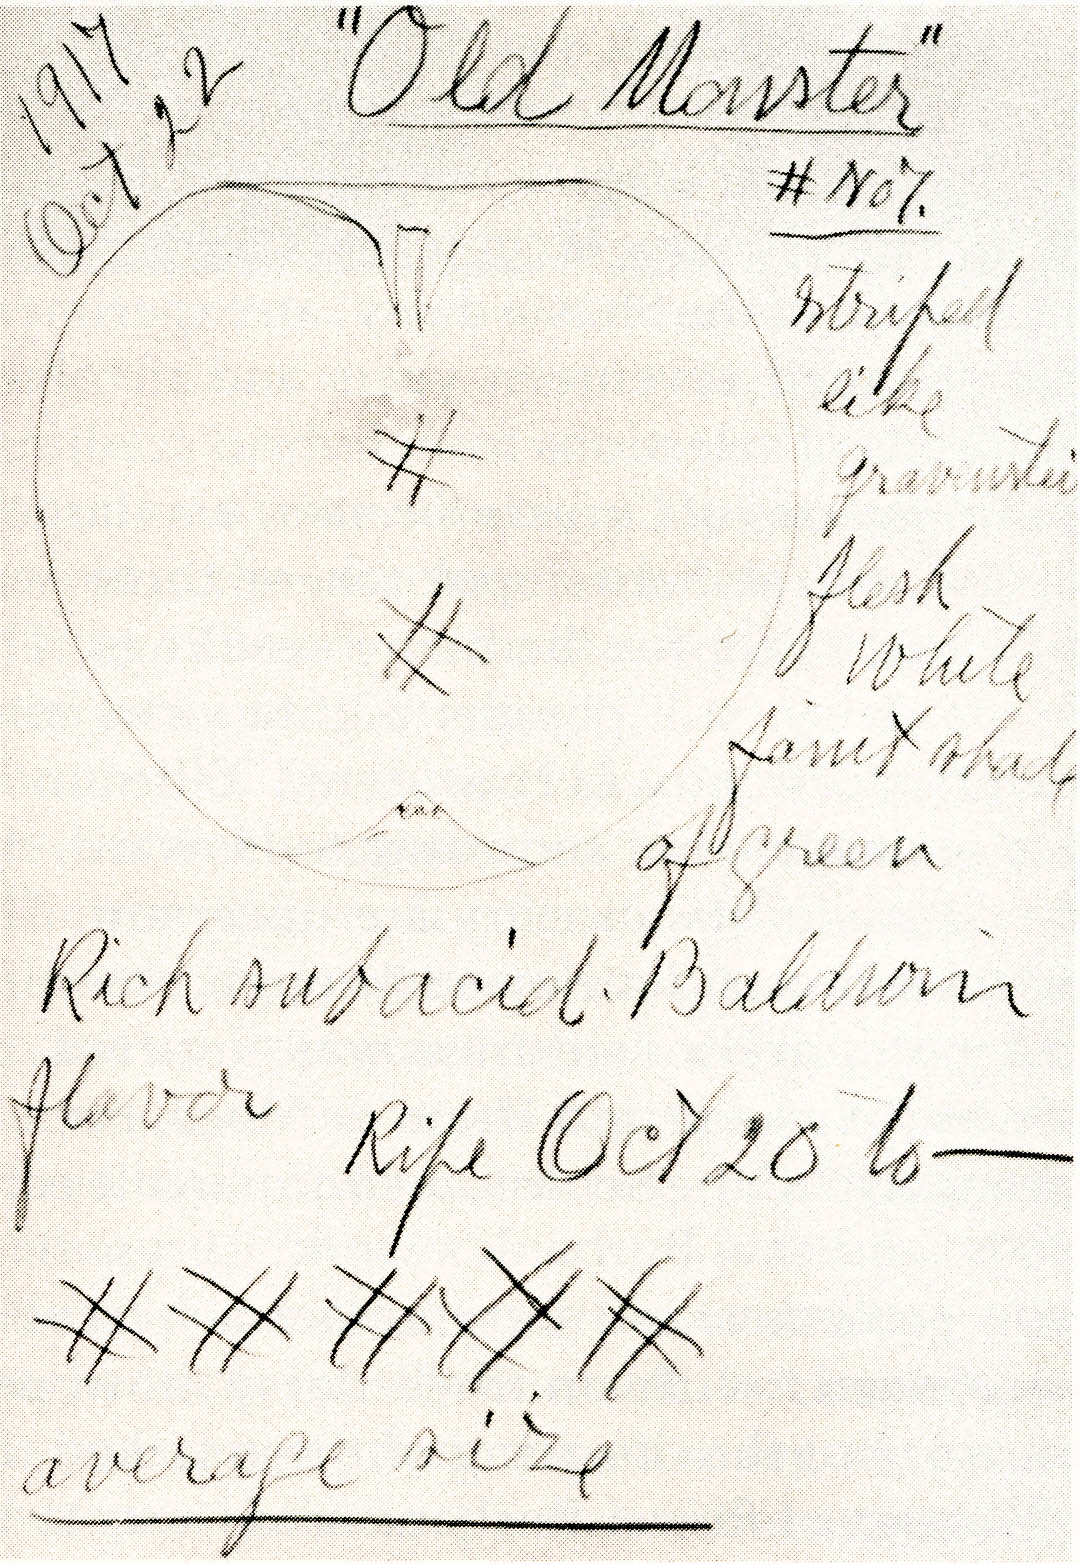 1917
Oct 22
"Old Monster"
# No 7.
striped
like
gravenstei
flesh
white
faint shade
of green
#
#
Rich subacid. Baldwin
flavor
Ripe Oct 20 to —
# # # # #
average size